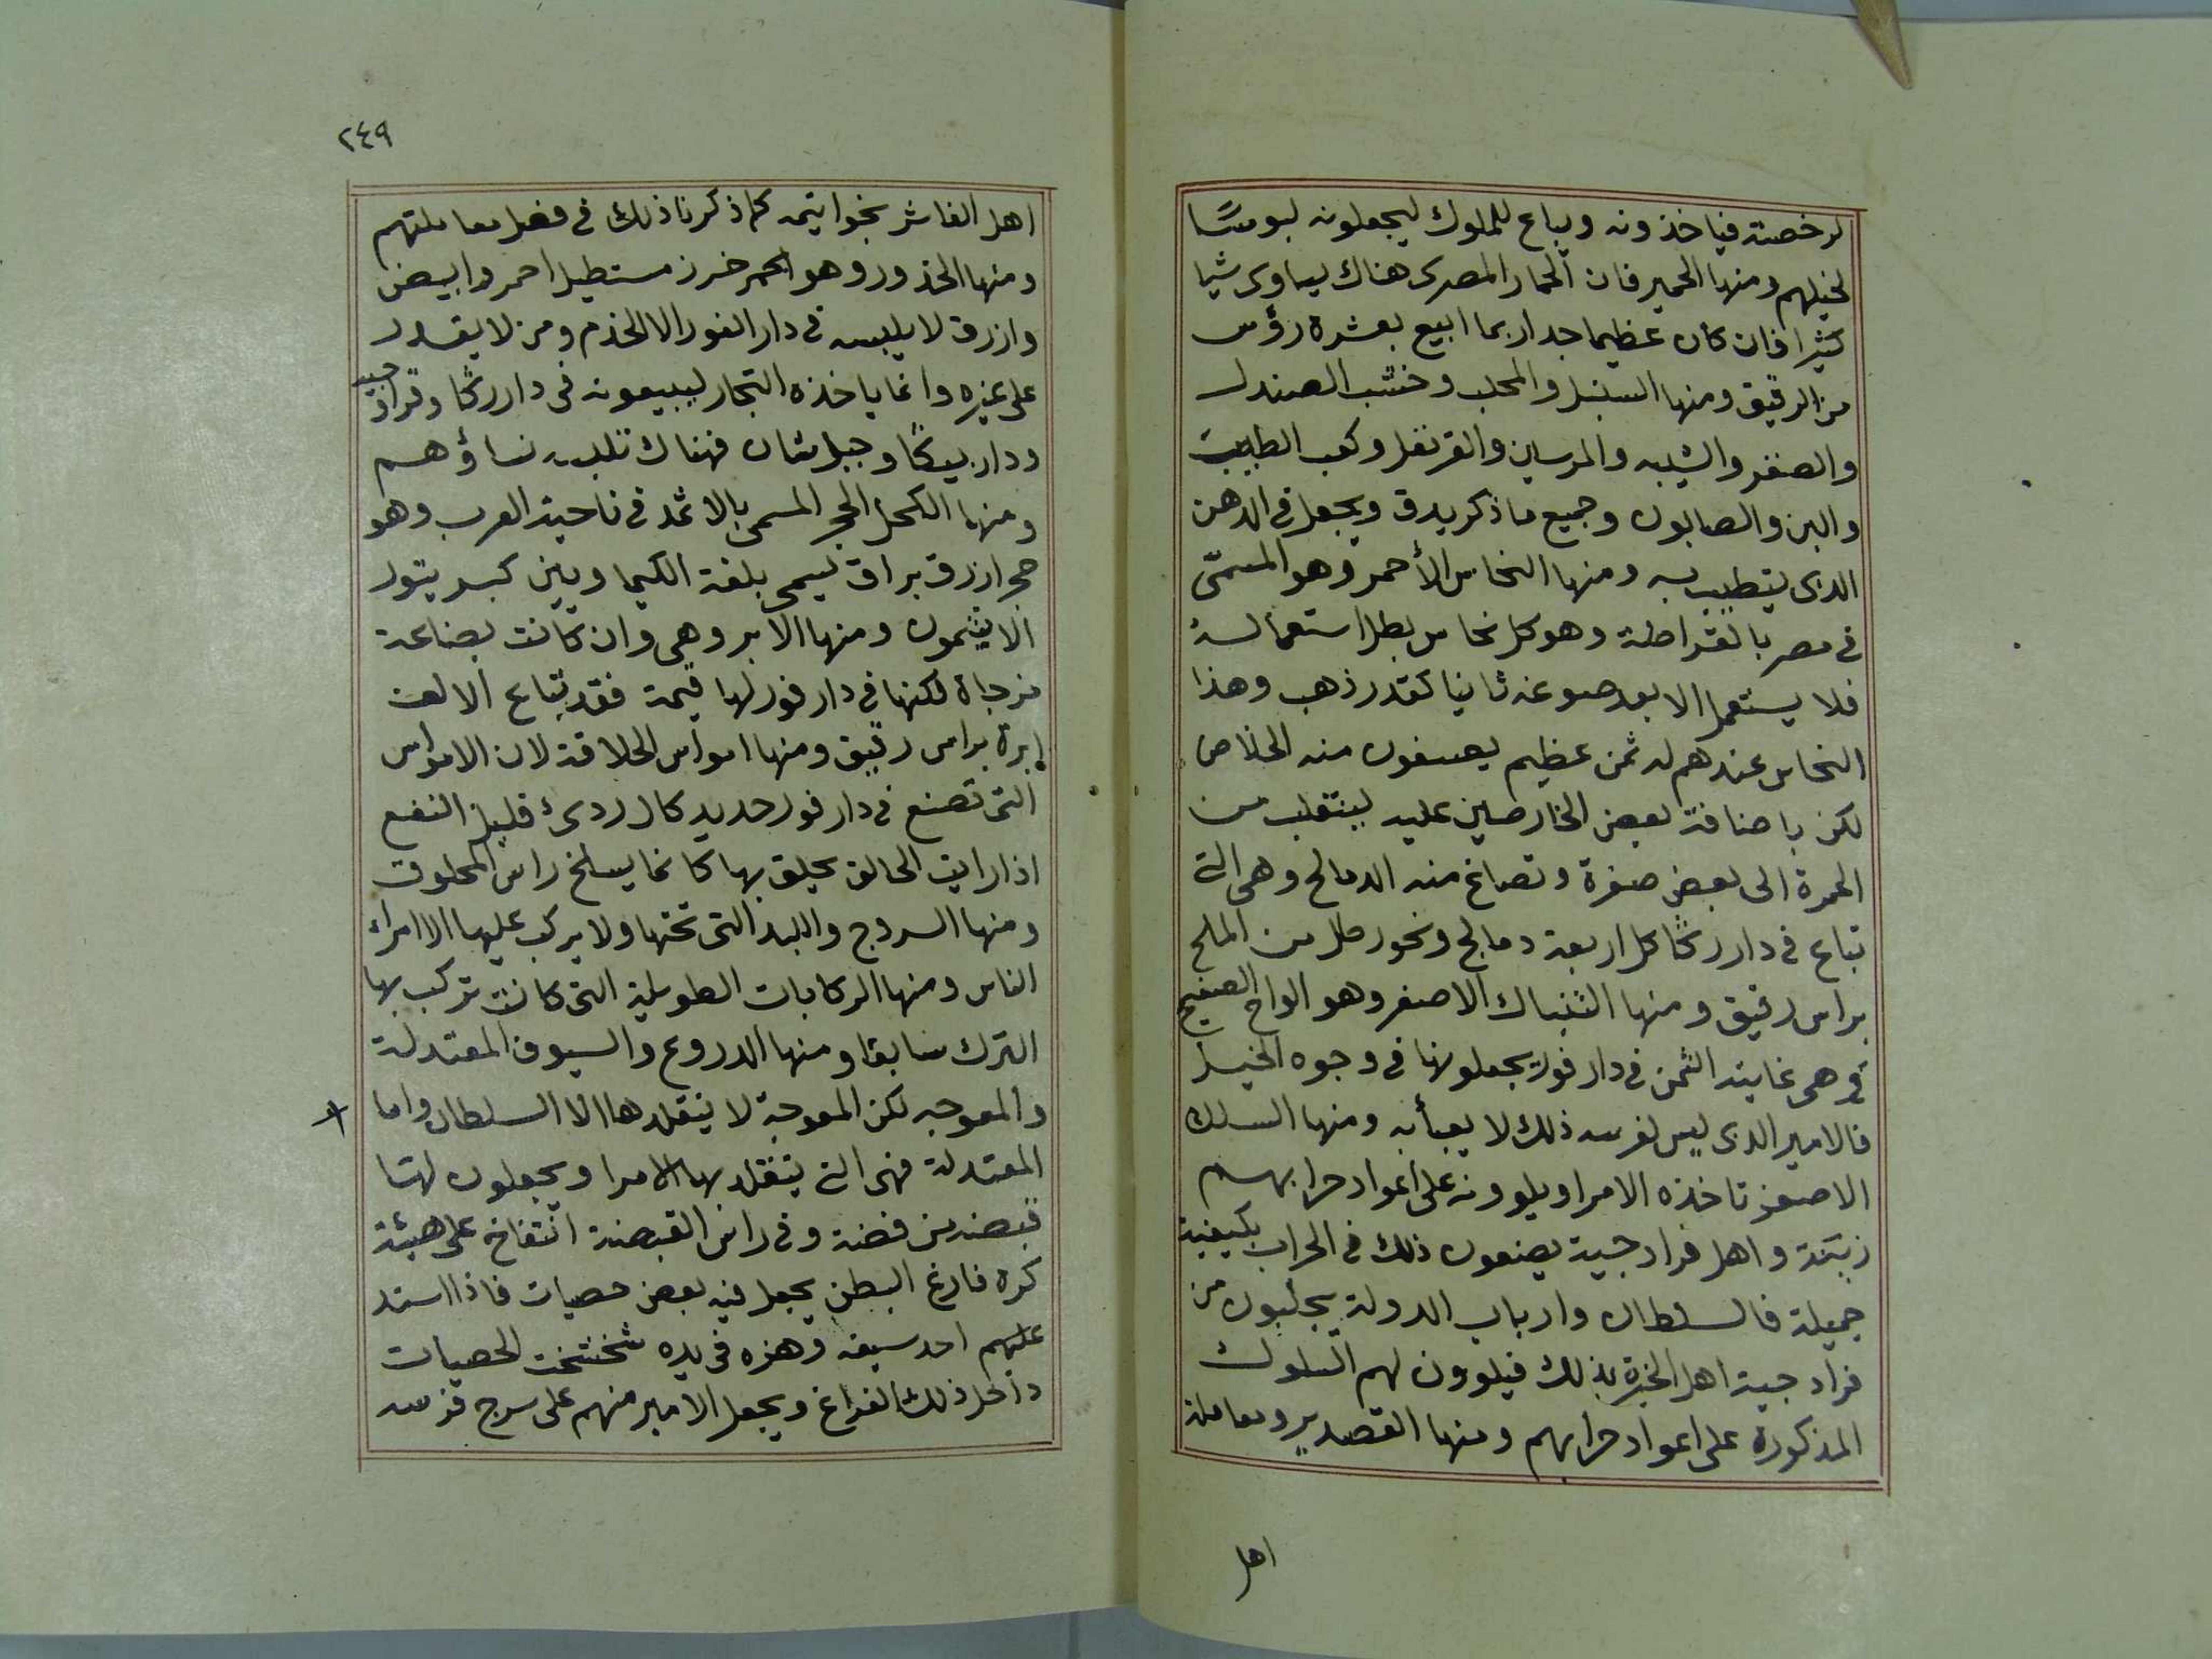 لرخصته فياخذونه ويباع للملوك ليجعلونه لبوسًا
لخيلهم ومنها الحمير فان الحمار المصرى هناك يساوى شيا
كثيرا فان كان عظيما جدا ربما ابيع بعشرة رؤس
من الرقيق ومنها السنبل والمحلب وخشب الصندل
والصنفر والشيبه والمرسين والقرنفل وكعب الطيب
والبن والصابون وجميع ما ذكر يدق ويجعل فى الدهن
الذى يتطيب به ومنها النحاس الأحمر وهو المسمّى
فى مصر بالقراضة وهو كل نحاس بطل استعماله
فلا يستعمل الا بعد صوغه ثانيا كقدر ذهب وهذا
النحاس عندهم له ثمن عظيم يصنعون منه الخلاص
لكن باضافة بعض الخارصين عليه لينقلب من
الحمرة الى بعض صفرة وتصاغ منه الدمالج وهى التى
تباع فى دار رنكا كل اربعة دمالج ونحو رطل من الملح
براس رقيق ومنها التنباك الاصفر وهو الواح الصفيح
وهى غاية الثمن فى دار فور يجعلونها فى وجوه الخيل
فالامير الذى ليس لفرسه ذلك لا يعبأ به ومنها السلك
الاصفر تاخذه الامرا ويلوونه على اعواد حرابهم
زينة واهل فراد جية يصنعون ذلك فى الحراب بكيفية
جميلة فالسلطان وارباب الدولة يجلبون من
فراد جية اهل الخبرة بذلك فيلوون لهم السلوك
المذكورة على اعواد حرابهم ومنها القصدير ومعاملة
اهل
٢٤٩
اهل الفاشر بخواتيمه كما ذكرنا ذلك فى فصل معاملتهم
ومنها الخدور وهو خرز مستطيل احمر وابيض
وازرق لا يلبسه فى دار الفور الا الخدم ومن لا يقدر
على غيره وانما ياخذه التجار ليبيعونه فى دار رنكا وفراد جيد
ودار بينكا وجبل شان فهناك تلبسه نساؤهم
ومنها الكحل الحجر المسمى بالاثمد فى ناحية العرب وهو
حجر ازرق براق يسمى بلغة الكيماويين كبريتور
الانتيمون ومنها الابر وهى وان كانت بضاعة
مزجاة لكنها فى دار فور لها قيمة فقد تباع الالف
ابرة براس رقيق ومنها امواس الحلاقة لان الامواس
التى تصنع فى دار فور حديد كال ردىء قليل النفع
اذا رايت الحالق يحلق بها كانما يسلخ راس المحلوق
ومنها السروج واللبد التى تحتها ولا يركب عليها الا امراء
الناس ومنها الركابات الطويلة التى كانت تركب بها
الترك سابقا ومنها الدروع والسيوف المعتدلة
والمعوجه لكن المعوجة لا يتقلدها الا السلطان واما
المعتدلة فهى التى يتقلد بها الامرا ويجعلون لها
قبضه من فضة وفى راس القبضة انتفاخ على هيئة
كرة فارغ البطن يجعل فيه بعض حصيات فاذا استد
عليهم احد سيفه وهزه فى يده شخشخت الحصيات
داخل ذلك الفراغ ويجعل الامير منهم على سرج فرسه